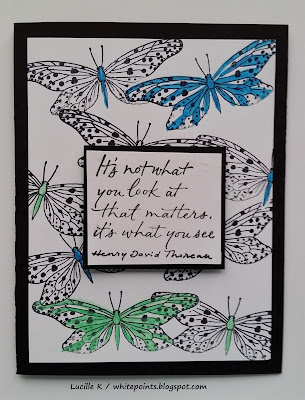 It's not what
you look at
that matters,
it's what you see
Henry David Thoreau
Lucille K / whitepoints.blogspot.com